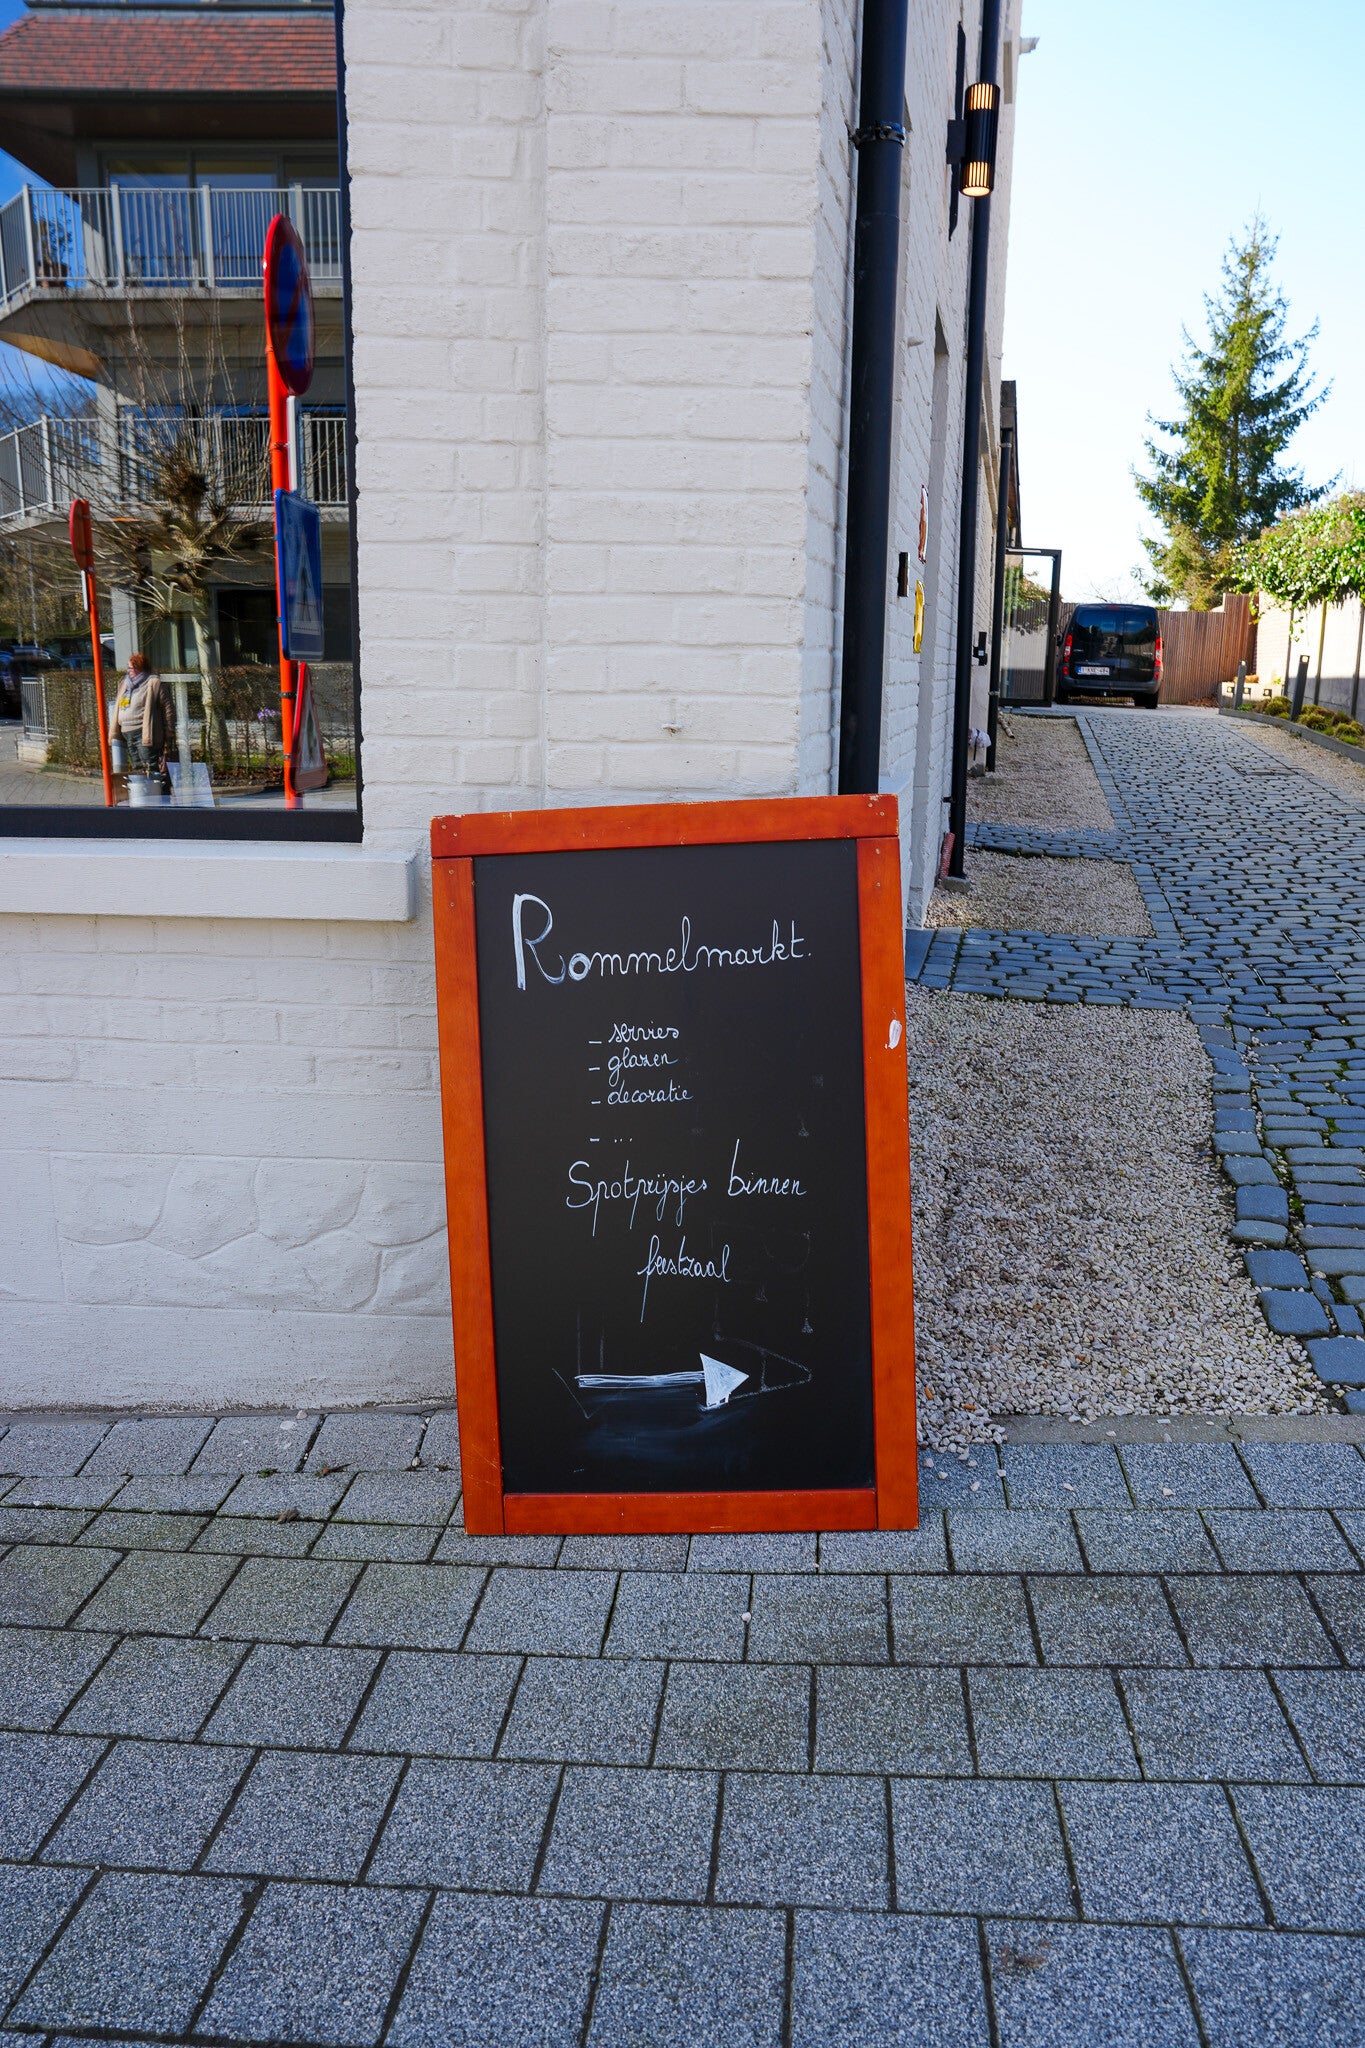 Rommelmarkt.
- servies
- glazen
- decoratie
- ...
Spotprijsjes binnen
feestzaal